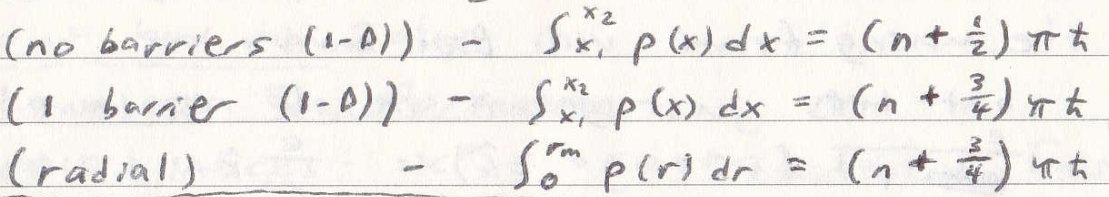 (no barriers (1-D)) - ∫_{x₁}^{x₂} p(x) dx = (n + 1/2) πħ
(1 barrier (1-D)) - ∫_{x₁}^{x₂} p(x) dx = (n + 3/4) πħ
(radial) - ∫_{0}^{rm} p(r) dr = (n + 3/4) πħ